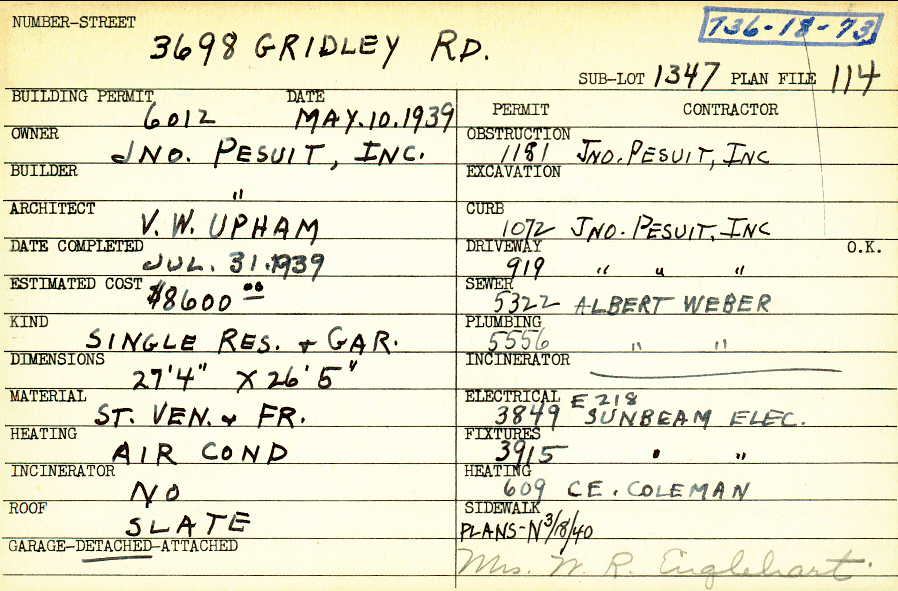 NUMBER-STREET
3698 GRIDLEY RD.
736-18-73
SUB-LOT 1347 PLAN FILE 114
BUILDING PERMIT DATE
6012 MAY.10.1939
OWNER
JNO. PESUIT, INC.
BUILDER
"
ARCHITECT
V. W. UPHAM
DATE COMPLETED
JUL. 31.1939
ESTIMATED COST $8600.00
KIND
SINGLE RES. + GAR.
DIMENSIONS
27'4" X 26'5"
MATERIAL
ST. VEN. + FR.
HEATING
AIR COND
INCINERATOR
NO
ROOF
SLATE
GARAGE-DETACHED-ATTACHED
PERMIT CONTRACTOR
OBSTRUCTION
1181 JNO. PESUIT, INC
EXCAVATION
CURB
1072 JNO. PESUIT, INC
DRIVEWAY O.K.
919 " " "
SEWER
5322 ALBERT WEBER
PLUMBING
5556 " "
INCINERATOR
ELECTRICAL E218
3849 SUNBEAM ELEC.
FIXTURES
3915 " "
HEATING
609 CE. COLEMAN
SIDEWALK
PLANS-N 3/18/40
Mrs. W. R. Englehart.